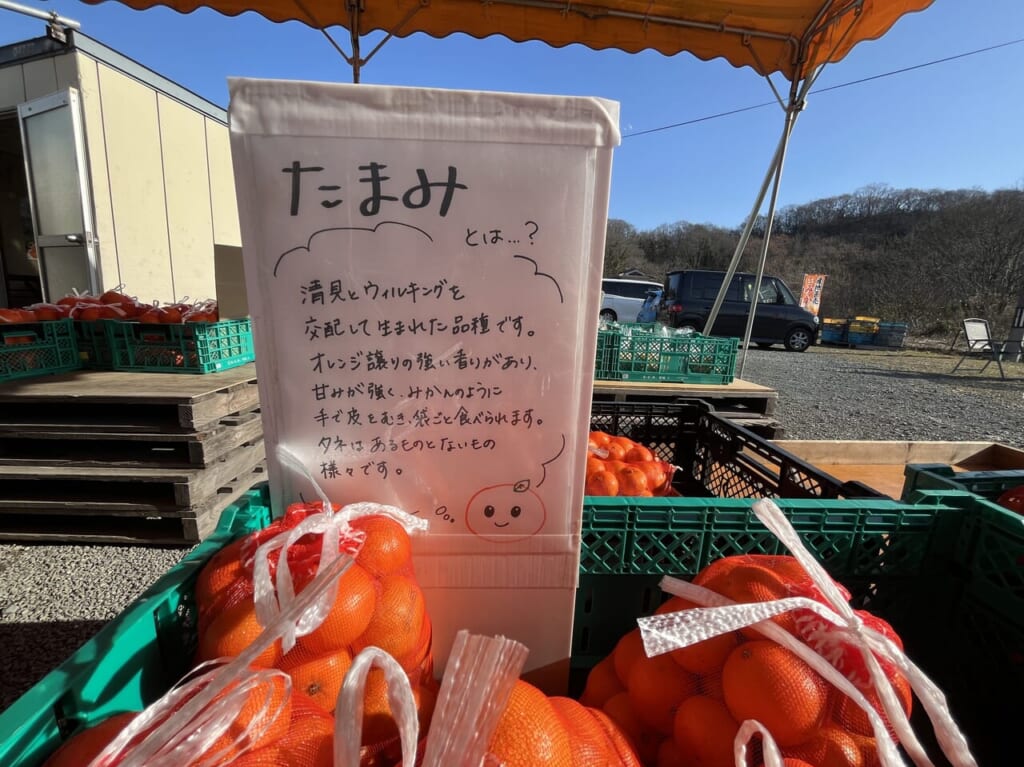 たまみ
とは…?
清見とウィルキングを
交配して生まれた品種です。
オレンジ譲りの強い香りがあり、
甘みが強く、みかんのように
手で皮をむき、袋ごと食べられます。
タネはあるものとないもの
様々です。